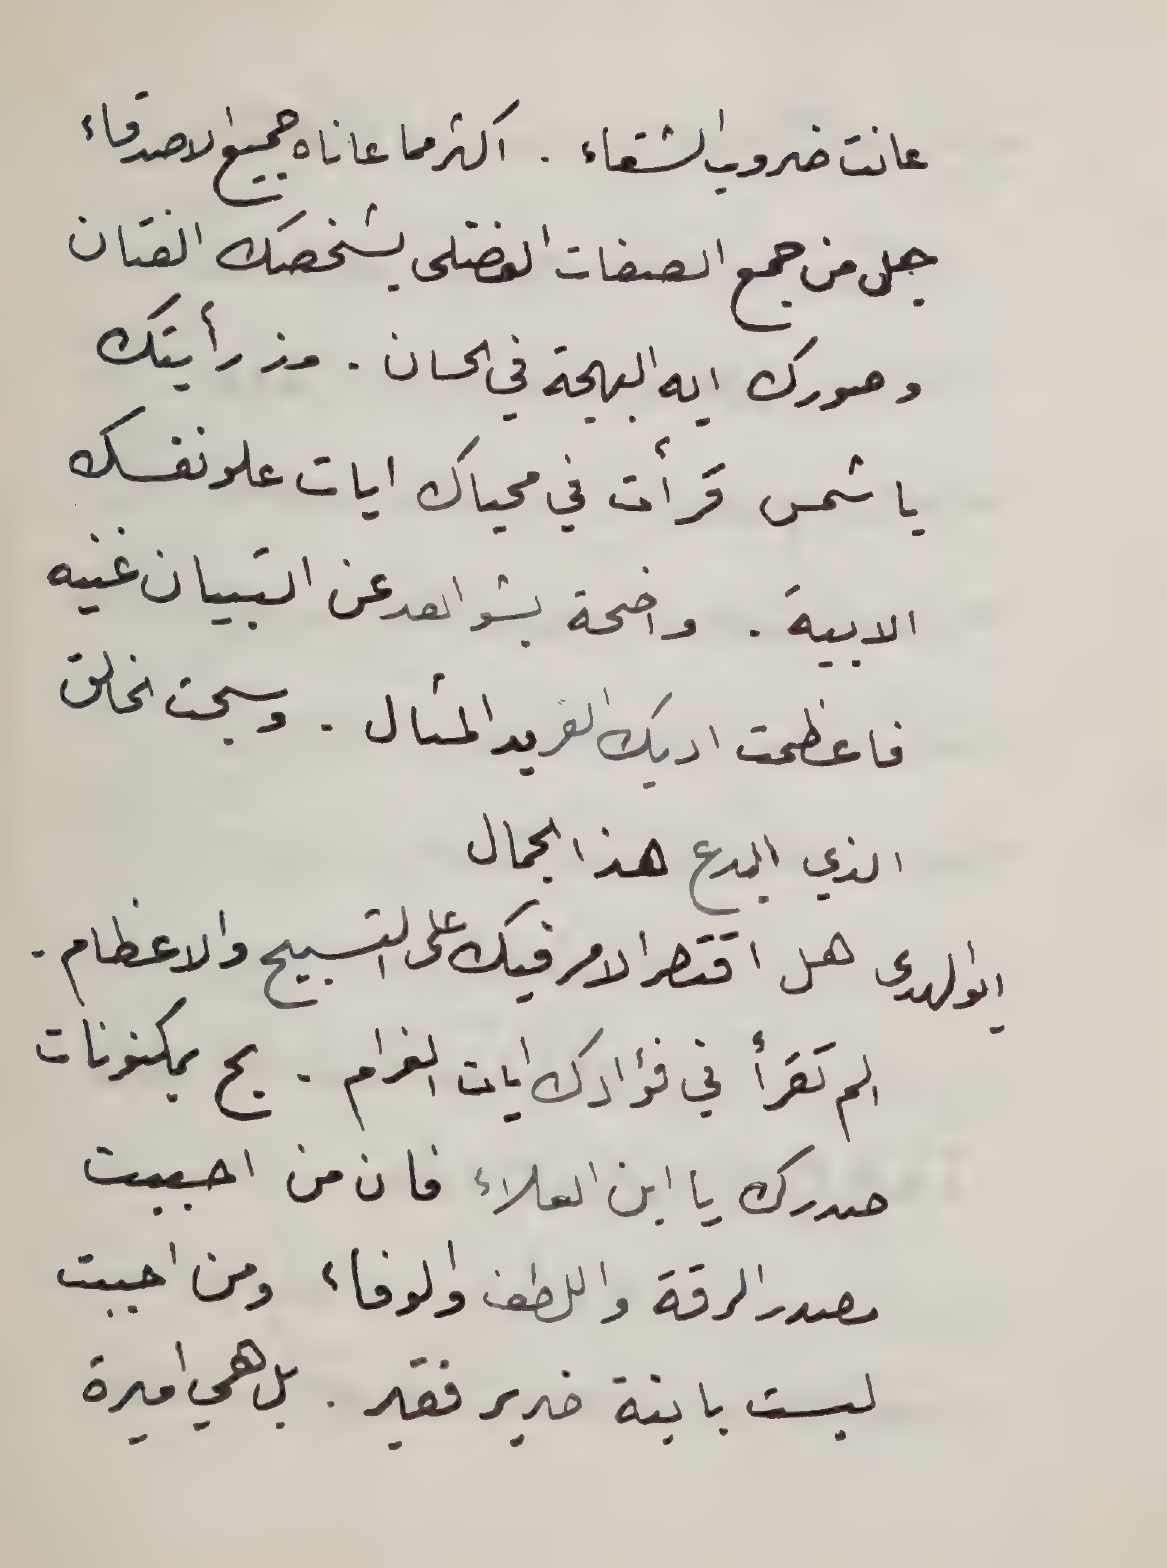 عانت ضروب الشقاء . اكثر مما عاناه جميع الاصدقاء
جل من جمع الصفات الفضلى بشخصك الفتان
وصورك ايه البهجة في الحسان . مذ رأيتك
يا شمس قرأت في محياك ايات علو نفسك
الابية . واضحة بشواهد عن التبيان غنيه
فاعظمت ادبك الفريد المثال . وسبحت الخالق
الذي ابدع هذا الجمال
ابو الهدى هل اقتصر الامر فيك على التسبيح والاعظام .
الم تقرأ في فؤادك ايات الغرام . بح بمكنونات
صدرك يا ابن العلاء فان من احببت
مصدر الرقة واللطف والوفاء ومن احببت
ليست بابنة ضرير فقير . بل هي اميرة